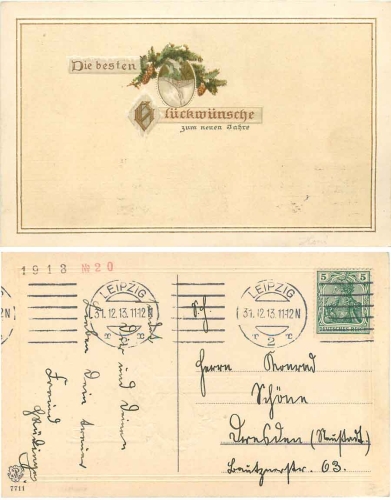 Die besten
Glückwünsche
zum neuen Jahre
1913 No 20
LEIPZIG
31.12.13.11-12N
2
LEIPZIG
31.12.13.11-12N
2
5 5
DEUTSCHES REICH
Dir und Deinen
Dein treuer
Freund
Herrn Konrad
Schöne
Dresden (Neustadt)
Bautznerstr. 63.
7711